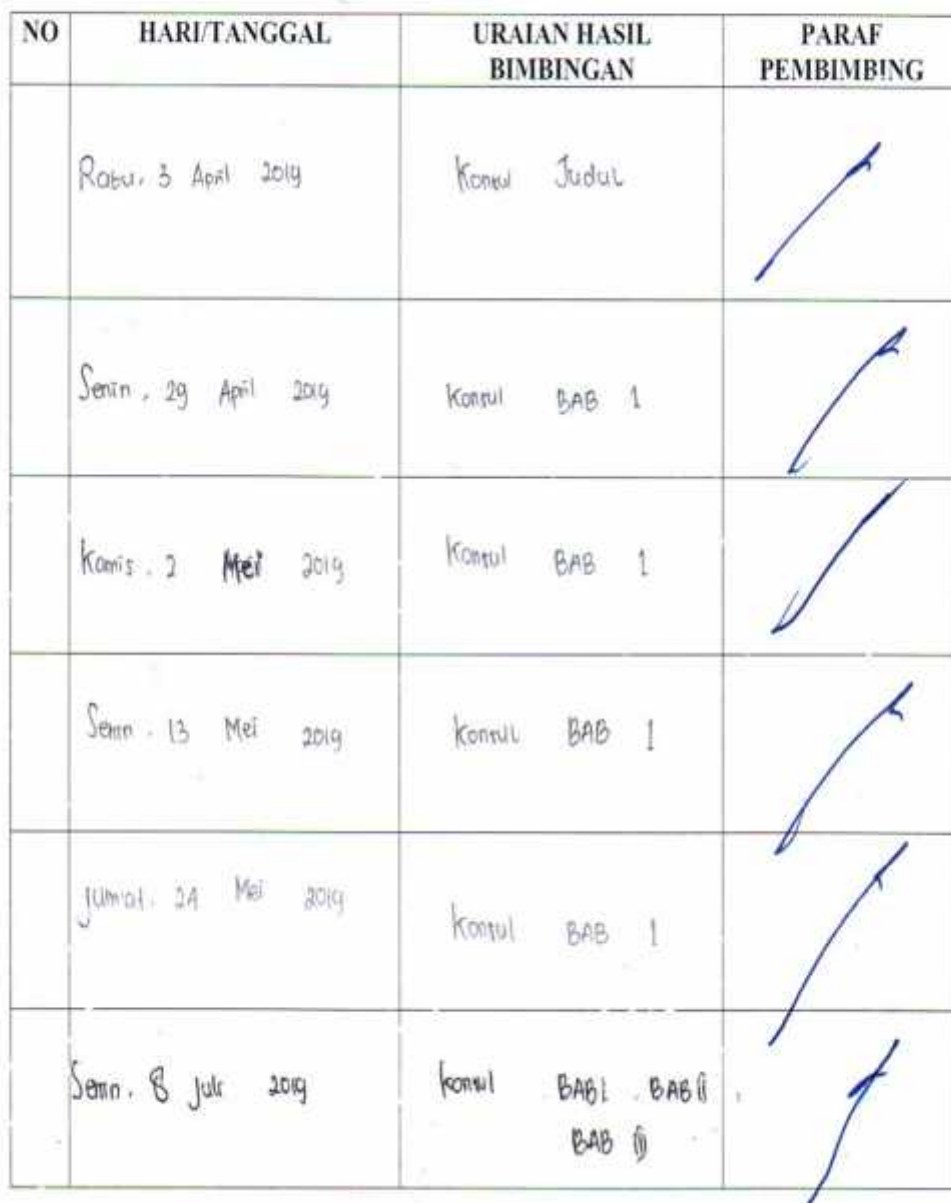 NO HARI/TANGGAL URAIAN HASIL BIMBINGAN PARAF PEMBIMBING
Rabu, 3 April 2019 Konsul Judul
Senin, 29 April 2019 Konsul BAB 1
Kamis, 2 Mei 2019 Konsul BAB 1
Senin, 13 Mei 2019 Konsul BAB 1
Jumat, 24 Mei 2019 Konsul BAB 1
Senin, 8 Juli 2019 Konsul BAB I, BAB II,
BAB